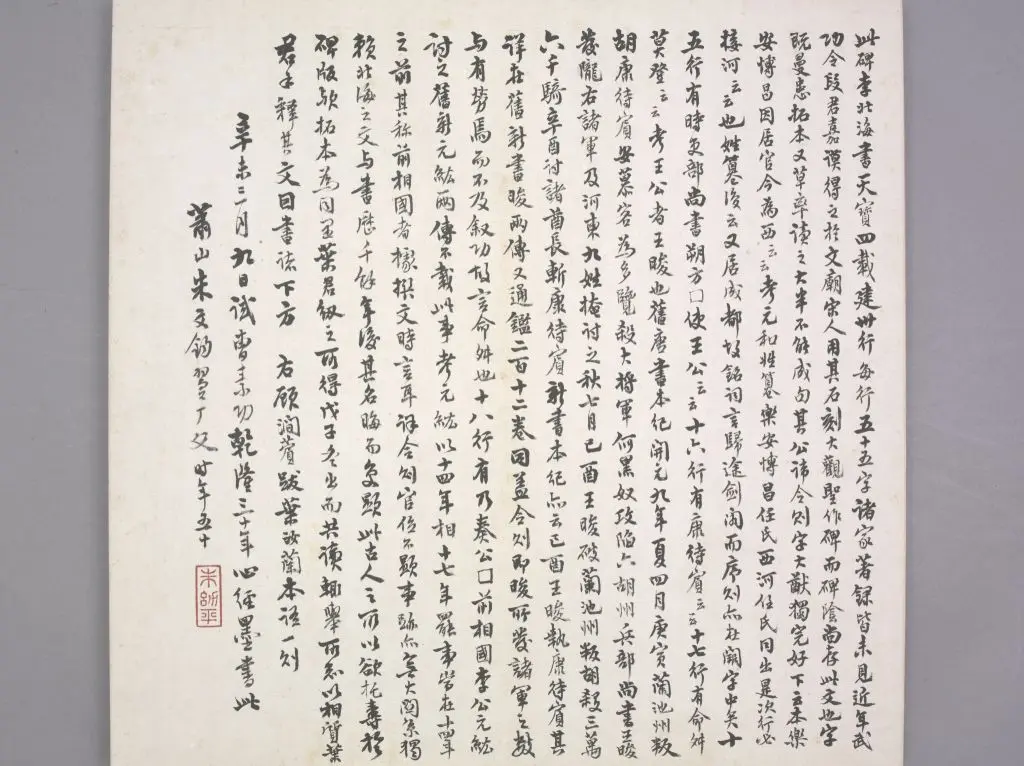 此碑李北海書天寶四載建卅行每行五十五字諸家著錄皆未見近年武
功令段君嘉謨得之於文廟宋人用其石刻大觀聖作碑而碑陰尚存此文也字
既曼患拓本又草率讀之大半不能成句其公諱令則字大猷獨完好下云本樂
安博昌因居官今為西云云考元和姓纂樂安博昌任氏西河任氏同出是次行必
接河云云也姓纂後云又居成都故銘詞言歸途劍閣而序則亦在闕字中矣十
五行有時吏部尚書朔方□使王公云云十六行有康待賓云云十七行有命舛
莫登云云考王公者王晙也舊唐書本紀開元九年夏四月庚寅蘭池州叛
胡康待賓安慕容為多覽殺大將軍何黑奴攻陷六胡州兵部尚書王晙
發隴右諸軍及河東九姓掩討之秋七月己酉王晙破蘭池州叛胡殺三萬
六千騎辛酉討諸酋長斬康待賓新書本紀亦云己酉王晙執康待賓其
詳在舊新書晙兩傳又通鑑二百十二卷同蓋令則即晙所發諸軍之數
與有勞焉而不及敘功故言命舛也十八行有乃奏公□前相國李公元紘
討之舊新元紘兩傳不載此事考元紘以十四年相十七年罷事當在十四年
之前其稱前相國者據撰文時言耳詳令則官位不顯事跡亦無大關係獨
賴北海之文與書歷千餘年後其名晦而更顯此古人之所以欲托壽於
碑版歟拓本為同里葉君紉之所得戊子冬出而共讀輒舉所知以相質葉
君手釋其文因書諸下方 右顧澗薲跋葉汝蘭本語一則
辛未二月九日試曹素功乾隆三十年四經墨書此
蕭山朱文鈞翼丁父時年五十
朱幼平